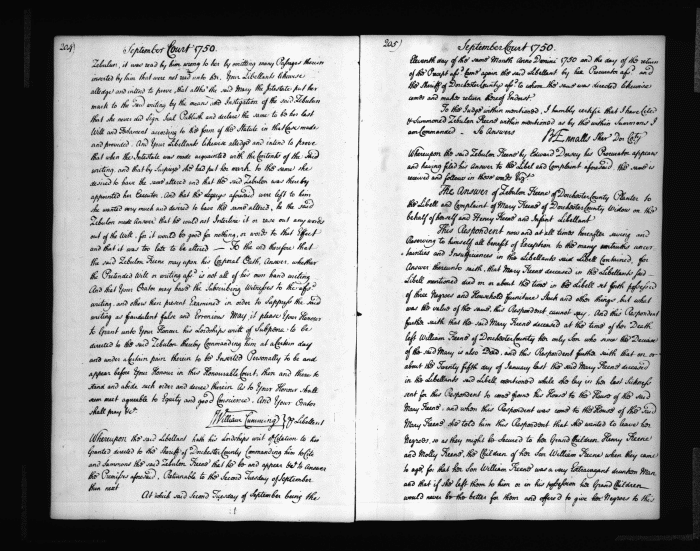 204)
September Court 1750.
Zebulon, it was read by him wrong to her by omitting many Passages therein
inserted by him that were not read unto her. Your Libellants likewise
alledge and intend to prove that altho the said Mary the Intestate put her
mark to the said writing by the means and Instigation of the said Zebulon
that she never did Sign Seal Publish and declare the same to be her last
Will and Testament according to the form of the Statute in that Case made
and provided. And Your Libellants likewise alledge and intend to prove
that when the Intestate was made acquainted with the Contents of the said
writing, and that by Surprize she had put her mark to the same she
desired to have the same altered and that the said Zebulon was thereby
appointed her Executor. And that the legacys aforesaid were left to him
she wanted very much and desired to have the same altered, to the said
Zebulon made Answer that he could not Interline it or rase out any words
out of the Will, for it would be good for nothing, or words to that Effect
and that it was too late to be altered — To the end therefore that
the said Zebulon Keene may upon his Corporal Oath, Answer, whether
the Pretended Will or writing afd. is not all of his own hand writing
And that Your Orator may have the Subscribing Witnesses to the afd.
writing and others then present Examined in order to Suppress the said
writing as fraudulent false and Erronious May it please Your Honour
to Grant unto Your Honour his lordships writ of Subpœna to be
directed to the said Zebulon thereby Commanding him at a Certain day
and under a Certain pain therein to be Inserted Personally to be and
appear before Your Honour in this Honourable Court, then and there to
stand and abide such order and decree therein as to Your Honour shall
seem meet agreeable to Equity and good Conscience. And Your Orator
shall pray &c.
William Cumming } P Libellant
Whereupon the said Libellant hath his lordships writ of Citation to her
Granted directed to the Sheriff of Dorchester County Commanding him to Cite
and Summons the said Zebulon Keene that he be and appear &c. to Answer
the Premises aforesaid, Returnable to the Second Tuesday of September
then next
At which said Second Tuesday of September being the
205)
September Court 1750.
Eleventh day of the same Month Anno Domini 1750 and the day of the return
of the Precept afd. Come again the said Libellant by her Procurator afd. and
the Sheriff of Dorchester County afd. to whom the same was directed likewise
comes and makes return thereof Endorst.
To the Judge within mentioned, I humbly certifie that I have Cited
& Summoned Zebulon Keene within mentioned as by the within Summons I
am Commanded. So Answers
Ennalls Sher Dor Coty
Whereupon the said Zebulon Keene by Edward Dorsey his Procurator appears
and having filed his Answer to the Libel and Complaint aforesaid the same is
received and follows in these words Vizt.
The Answer of Zebulon Keene of Dorchester County Planter to
the Libell and Complaint of Mary Keene of Dorchester County Widow on the
behalf of herself and Henry Keene and Infant Libellant.
This Respondent now and at all times hereafter saving and
Reserving to himself all benefit of Exception to the many incertainties uncer
tainties and Insufficiences in the Libellants said Libell Contained, for
Answer thereunto saith, that Mary Keene deceased in the Libellants said
Libell mentioned died on or about the time in the Libell set forth possessed
of three Negroes and Household furniture Stock and other things but what
was the value of the same, this Respondent cannot say. And this Respondent
further saith that the said Mary Keene deceased at the time of her Death
left William Keene of Dorchester County her only Son who since the Decease
of the said Mary is also Dead, and this Respondent further saith that on or
about the Twenty fifth day of January last the said Mary Keene deceased
in the Libellants said Libell mentioned while she lay in her last Sickness
sent for this Respondent to come from his House to the House of the said
Mary Keene, and when this Respondent was come to the House of the said
Mary Keene she told him this Respondent that she wanted to leave her
Negroes, so as they might be Secured to her Grand Children, Henry Keene
and Molly Keene the Children of her Son William Keene when they came
to age for that her Son William Keene was a very Extravagant drunken Man
and that if she left them to him or in his possession her Grand Children
would never be the better for them and offered to give her Negroes to this